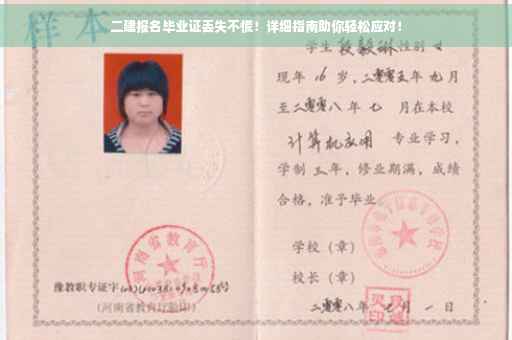 二建报名毕业证丢失不慌！详细指南助你轻松应对！
样本
学生 段毅琳 性别 女
现年 16 岁，二零零五年 九 月
至二零零八年 七 月在本校
计算机应用 专业学习，
学制 三 年，修业期满，成绩
合格，准予毕业
学校（章）
校长（章）
二零零八年 七 月 一 日
河南省教育厅
豫教职专证字
（河南省教育厅验印）